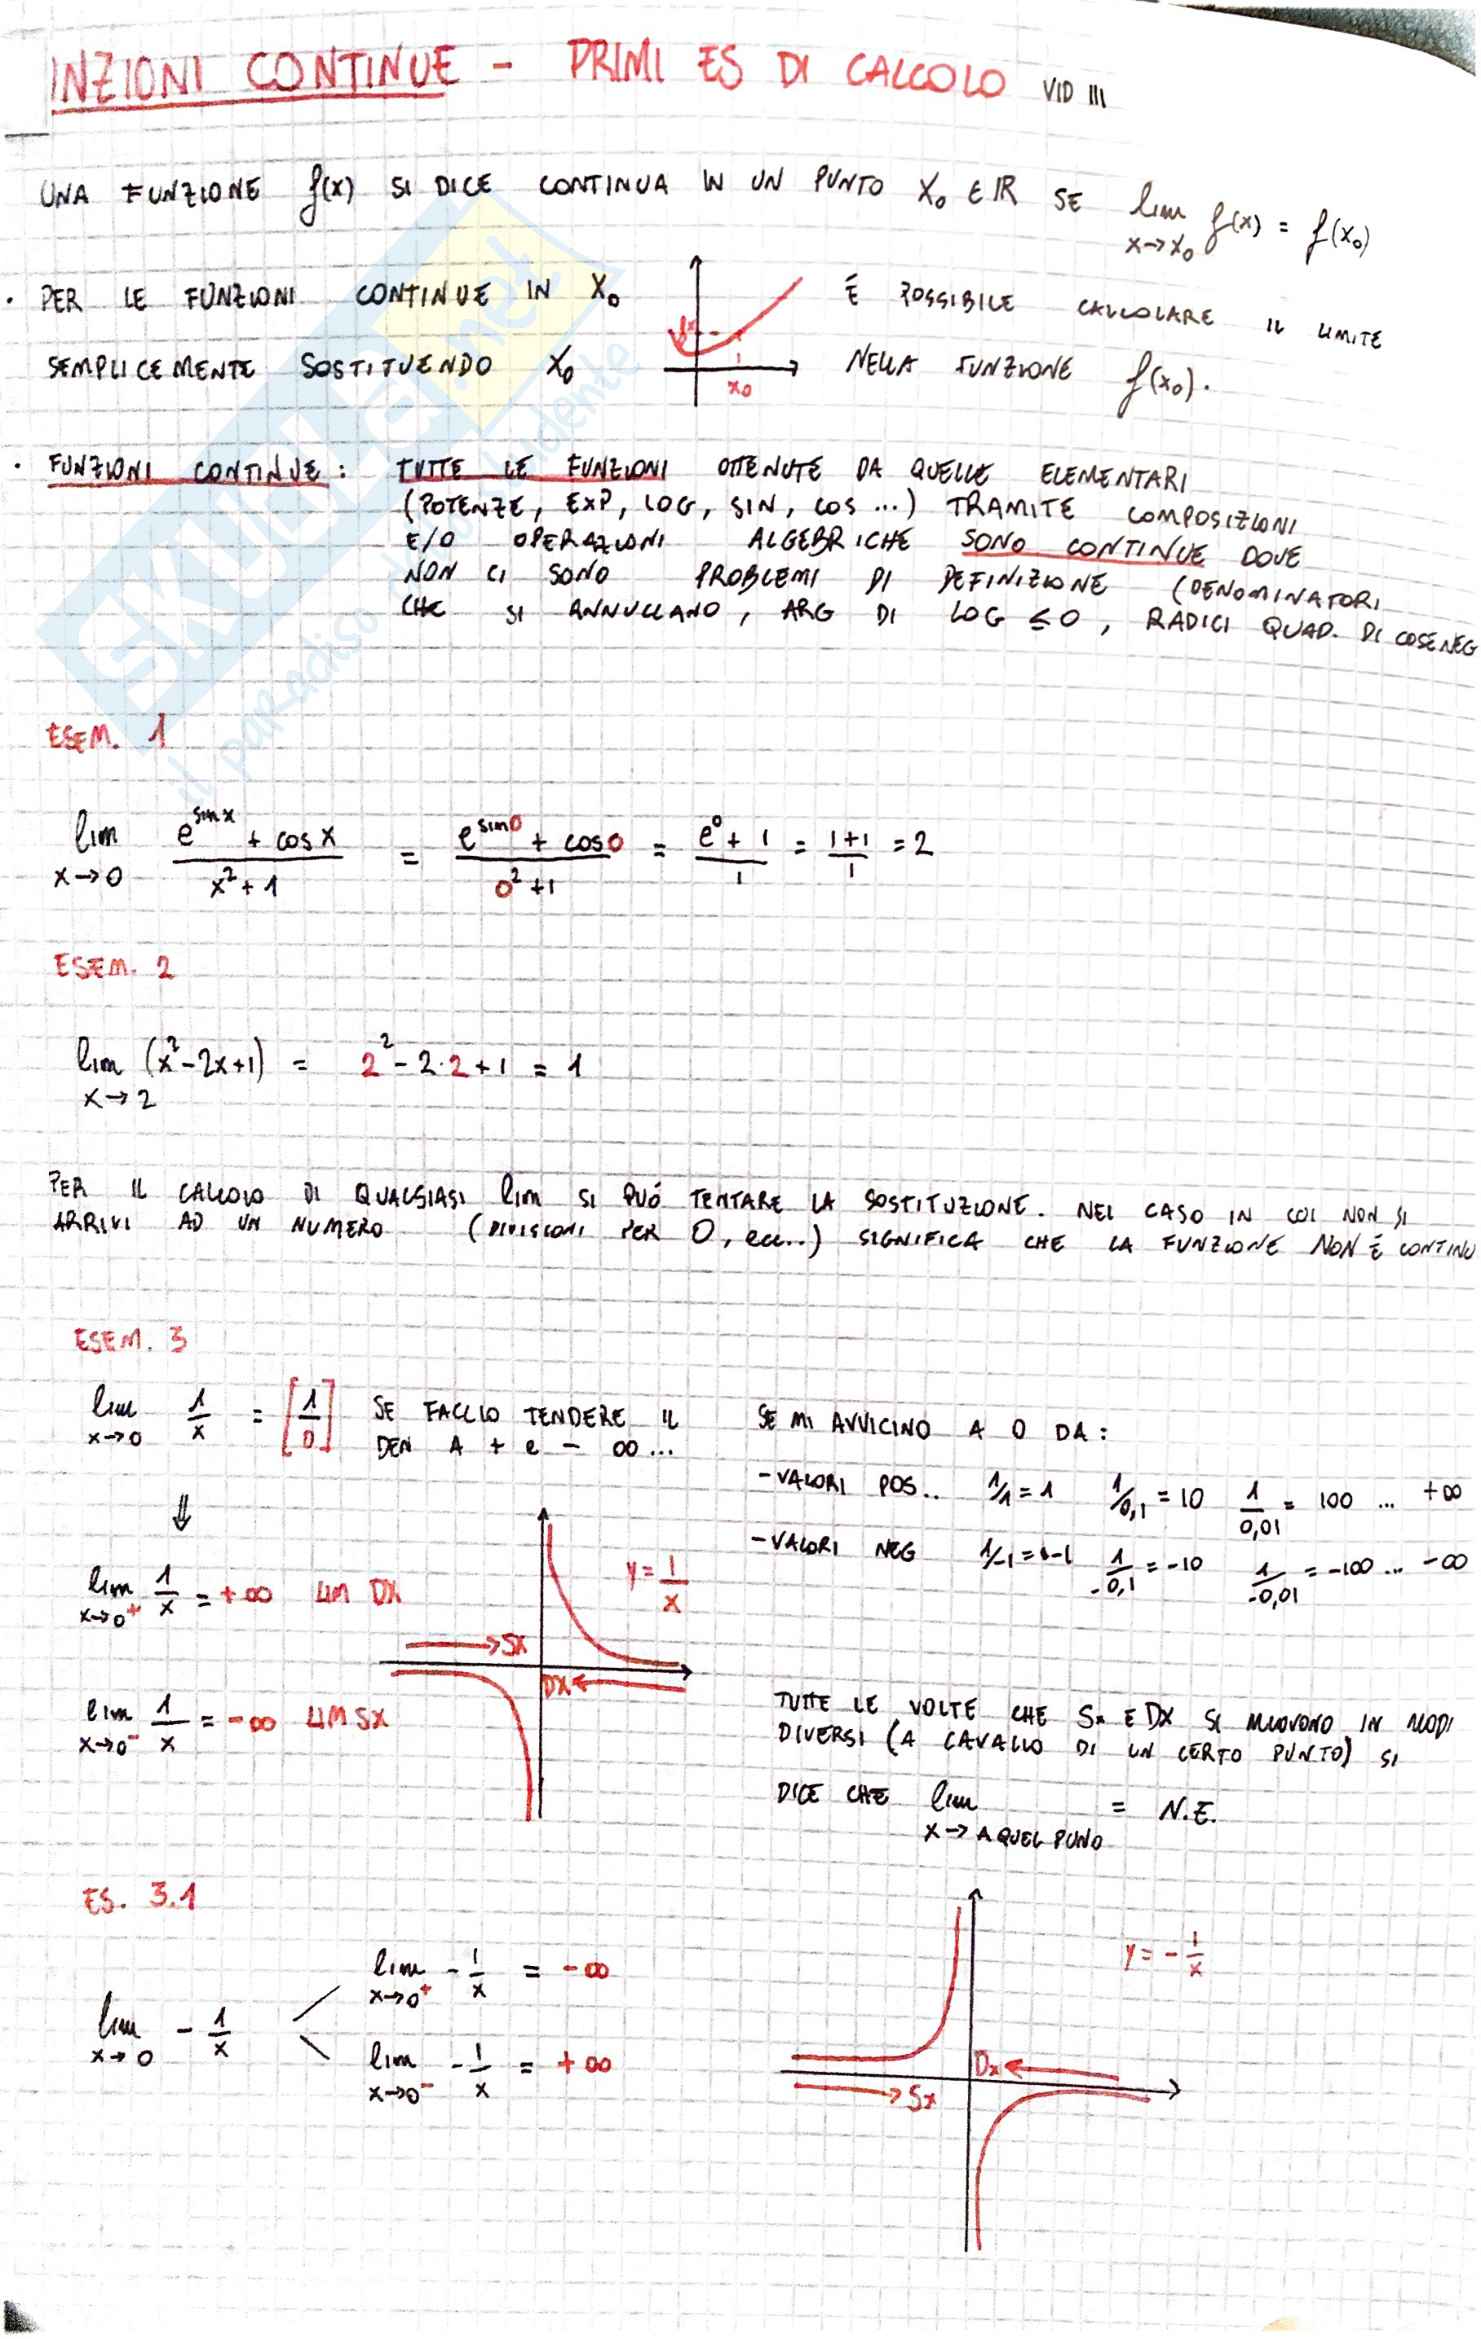 INZIONI CONTINUE - PRIMI ES DI CALCOLO VID III
UNA FUNZIONE f(x) SI DICE CONTINUA IN UN PUNTO X₀ ∈ IR SE lim x→x₀ f(x) = f(x₀)
• PER LE FUNZIONI CONTINUE IN X₀ È POSSIBILE CALCOLARE IL LIMITE
SEMPLICEMENTE SOSTITUENDO X₀ NELLA FUNZIONE f(x₀).
x₀
• FUNZIONI CONTINUE: TUTTE LE FUNZIONI OTTENUTE DA QUELLE ELEMENTARI
(POTENZE, EXP, LOG, SIN, COS ...) TRAMITE COMPOSIZIONI
E/O OPERAZIONI ALGEBRICHE SONO CONTINUE DOVE
NON CI SONO PROBLEMI DI DEFINIZIONE (DENOMINATORI
CHE SI ANNULLANO, ARG DI LOG ≤ 0, RADICI QUAD. DI COSE NEG
SKUOLA.net
il paradiso dello studente
ESEM. 1
lim x→0 (e^(sin x) + cos x)/(x² + 1) = (e^(sin 0) + cos 0)/(0² + 1) = (e⁰ + 1)/1 = (1+1)/1 = 2
ESEM. 2
lim x→2 (x² - 2x + 1) = 2² - 2·2 + 1 = 1
PER IL CALCOLO DI QUALSIASI lim SI PUÓ TENTARE LA SOSTITUZIONE. NEL CASO IN CUI NON SI
ARRIVI AD UN NUMERO (DIVISIONI PER 0, ecc...) SIGNIFICA CHE LA FUNZIONE NON É CONTINU
ESEM. 3
lim x→0 1/x = [1/0] SE FACCIO TENDERE IL
DEN A + e - ∞ ...
SE MI AVVICINO A 0 DA:
- VALORI POS.. 1/1 = 1 1/0,1 = 10 1/0,01 = 100 ... +∞
- VALORI NEG 1/-1 = -1 1/-0,1 = -10 1/-0,01 = -100 ... -∞
⇓
lim x→0⁺ 1/x = +∞ LIM DX
lim x→0⁻ 1/x = -∞ LIM SX
y = 1/x
SX
DX
TUTTE LE VOLTE CHE Sx E DX SI MUOVONO IN MODI
DIVERSI (A CAVALLO DI UN CERTO PUNTO) SI
DICE CHE lim x→A QUEL PUNO = N.E.
ES. 3.1
lim x→0 - 1/x
lim x→0⁺ - 1/x = -∞
lim x→0⁻ - 1/x = +∞
y = - 1/x
Dx
Sx